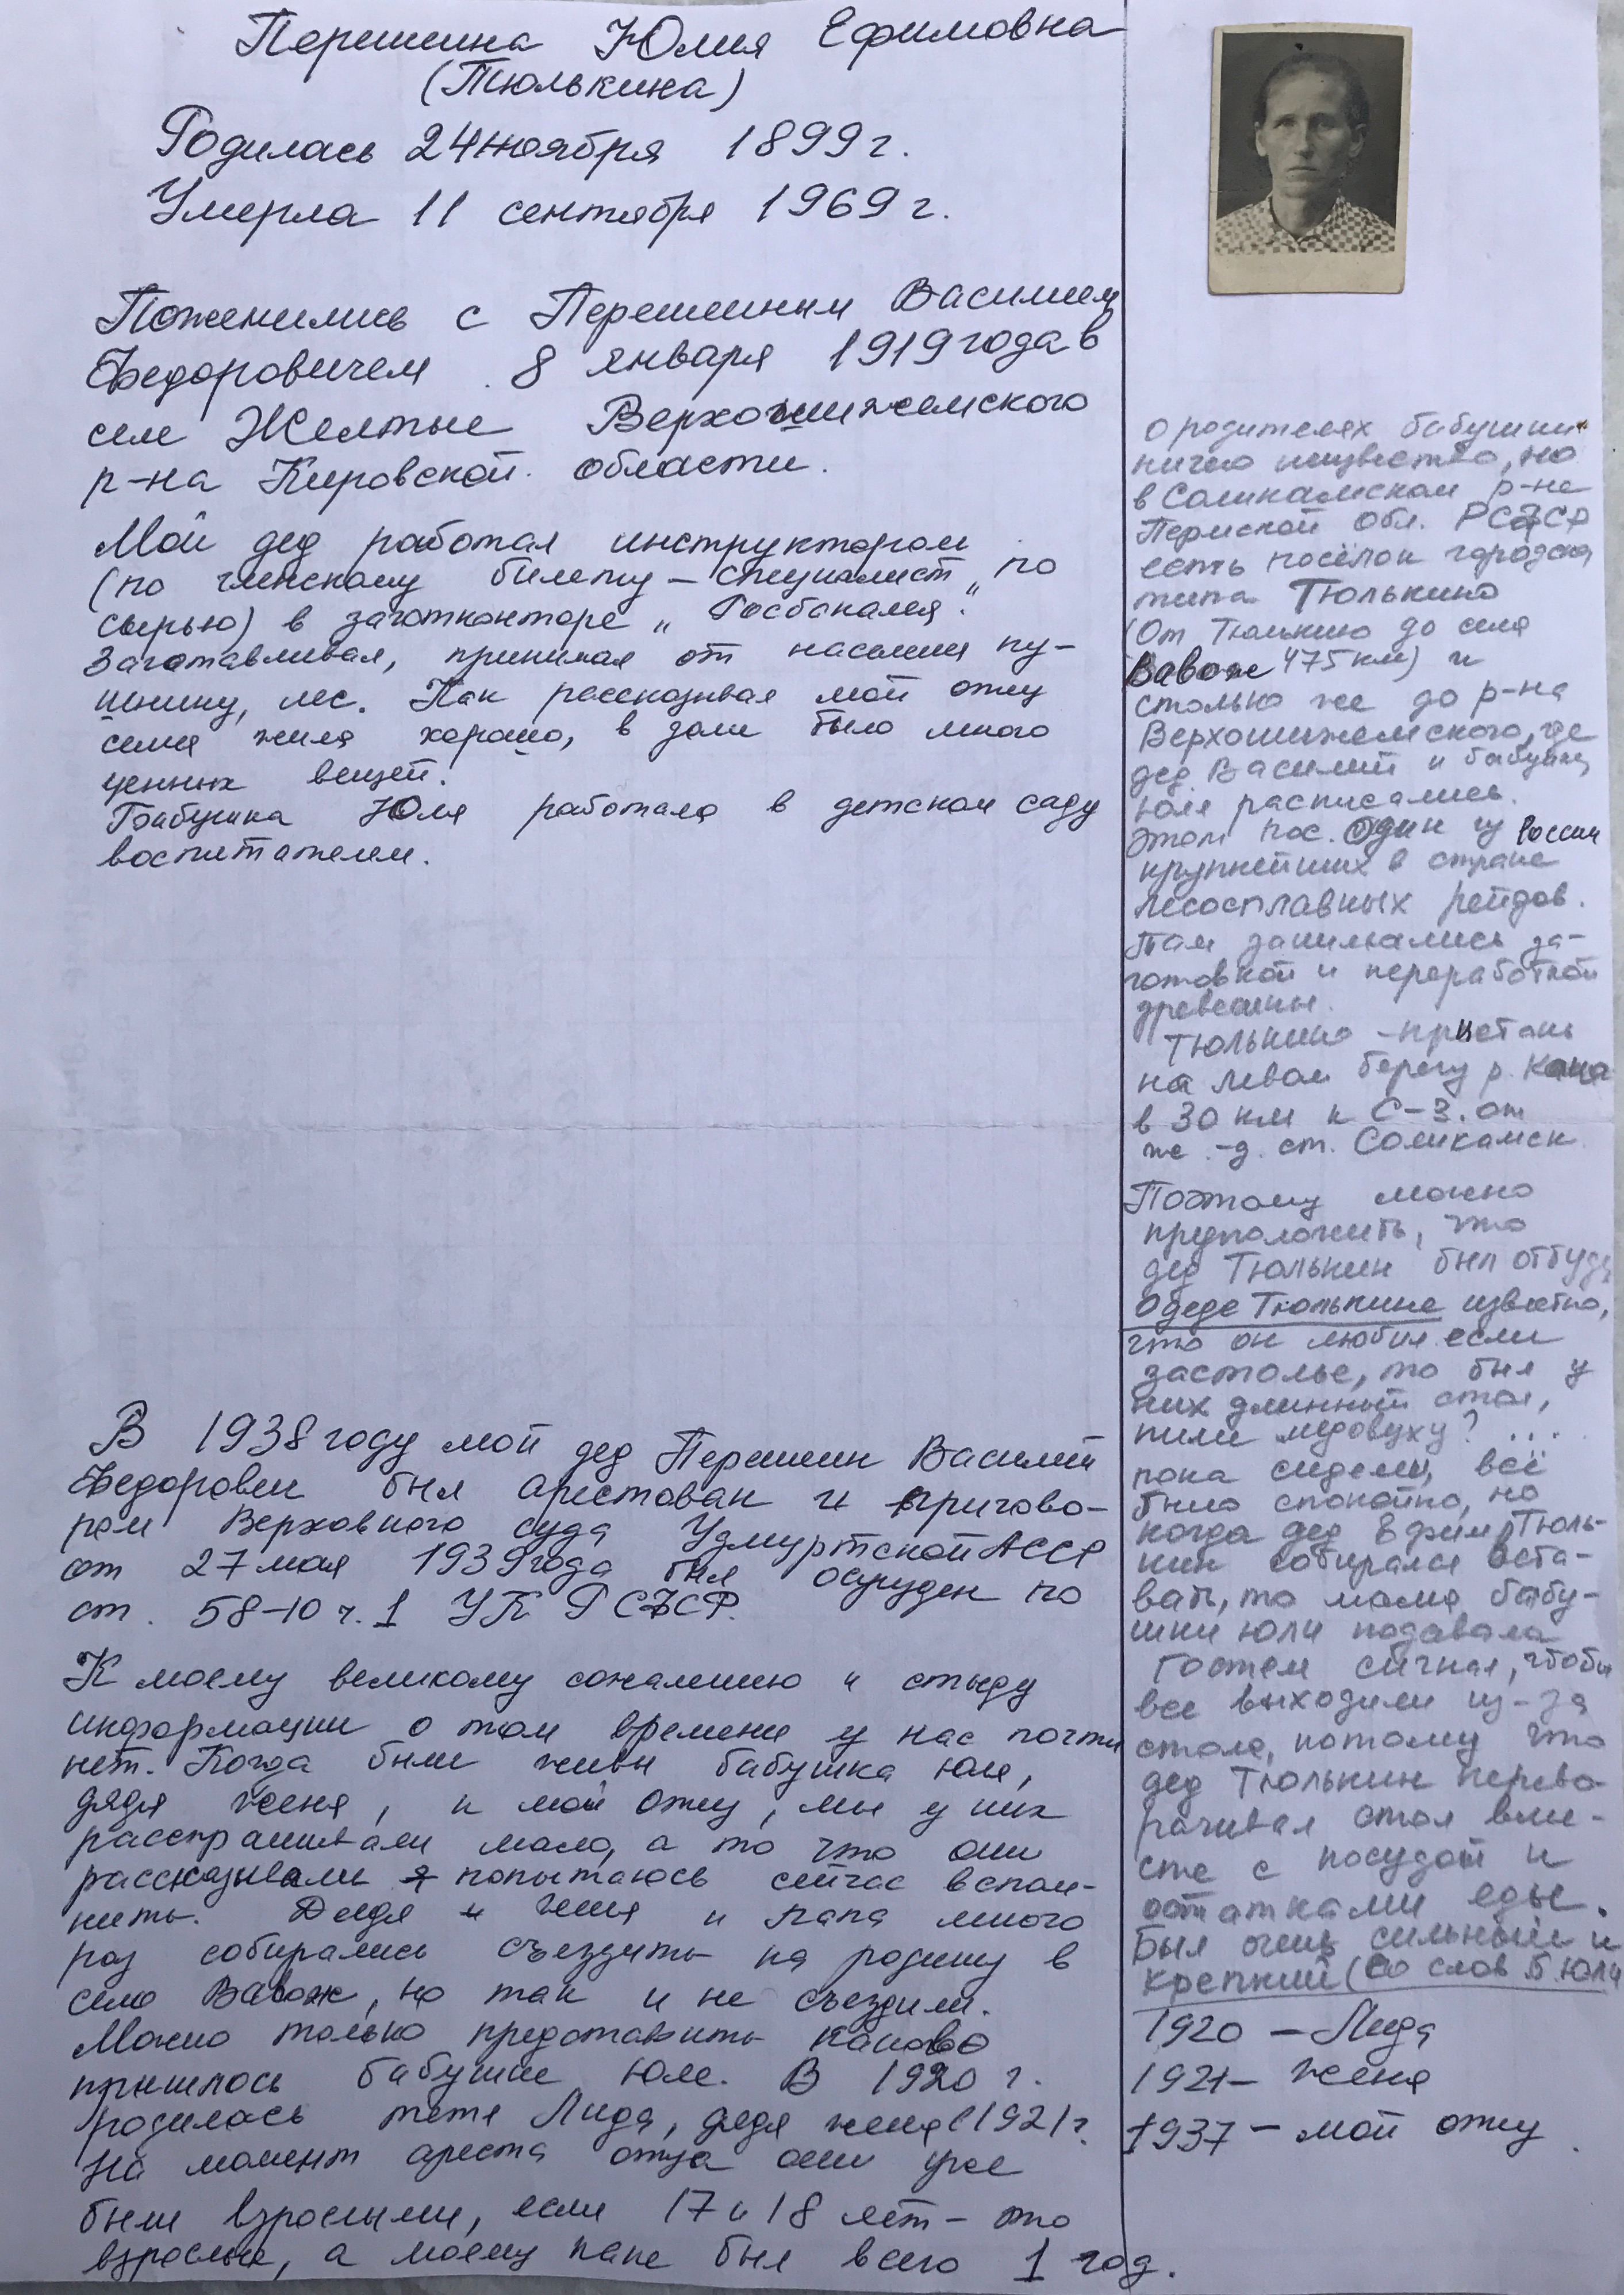 Першина Юлия Ефимовна
(Тюлькина)
Родилась 24 ноября 1899 г.
Умерла 11 сентября 1969 г.
Поженились с Першиным Василием
Федоровичем 8 января 1919 года в
селе Желтые Верхошижемского
р-на Кировской области.
Мой дед работал инструктором
(по членскому билету – специалист по
сырью) в заготконторе „Госбакалея".
Заготавливал, принимал от населения пу-
шнину, лес. Как рассказывал мой отец
семья жила хорошо, в доме было много
ценных вещей.
Бабушка Юля работала в детском саду
воспитателем.
В 1938 году мой дед Першин Василий
Федорович был арестован и пригово-
ром Верховного суда Удмуртской АССР
от 27 мая 1939 года был осужден по
ст. 58-10 ч. 1 УК РСФСР.
К моему великому сожалению и стыду
информации о том времени у нас почти
нет. Когда были живы бабушка Юля,
дядя Женя, и мой отец, мы у них
расспрашивали мало, а то что они
рассказывали я попытаюсь сейчас вспом-
нить. Дядя Женя и папа много
раз собирались съездить на родину в
село Вавож, но так и не съездили.
Можно только представить каково
пришлось бабушке Юле. В 1920 г.
родилась тетя Лида, дядя Женя в 1921 г.
На момент ареста отца они уже
были взрослыми, если 17 и 18 лет – это
взрослые, а моему папе был всего 1 год.
О родителях бабушки
ничего неизвестно, но
в Соликамском р-не
Пермской обл. РСФСР
есть посёлок городск
типа Тюлькино
(От Тюлькино до села
Вавож 475 км) и
столько же до р-на
Верхошижемского, где
дед Василий и бабушка
Юля расписались.
Этот пос. один из России
крупнейших в стране
лесосплавных рейдов.
Там занимались за-
готовкой и переработкой
древесины.
Тюлькино – пристань
на левом берегу р. Кама
в 30 км к С-З. от
ж.-д. ст. Соликамск
Поэтому можно
предположить, что
дед Тюлькин был оттуда
О деде Тюлькине известно,
что он любил если
застолье, то был у
них длинный стол,
пили медовуху? ...
пока сидели, всё
было спокойно, но
когда дед Ефим Тюль-
кин собирался вста-
вать, то мама бабу-
шки Юли подавала
гостям сигнал, чтобы
все выходили из-за
стола, потому что
дед Тюлькин перево-
рачивал стол вме-
сте с посудой и
остатками еды.
Был очень сильный и
крепкий (со слов б. Юли
1920 – Лида
1921 – Женя
1937 – мой отец